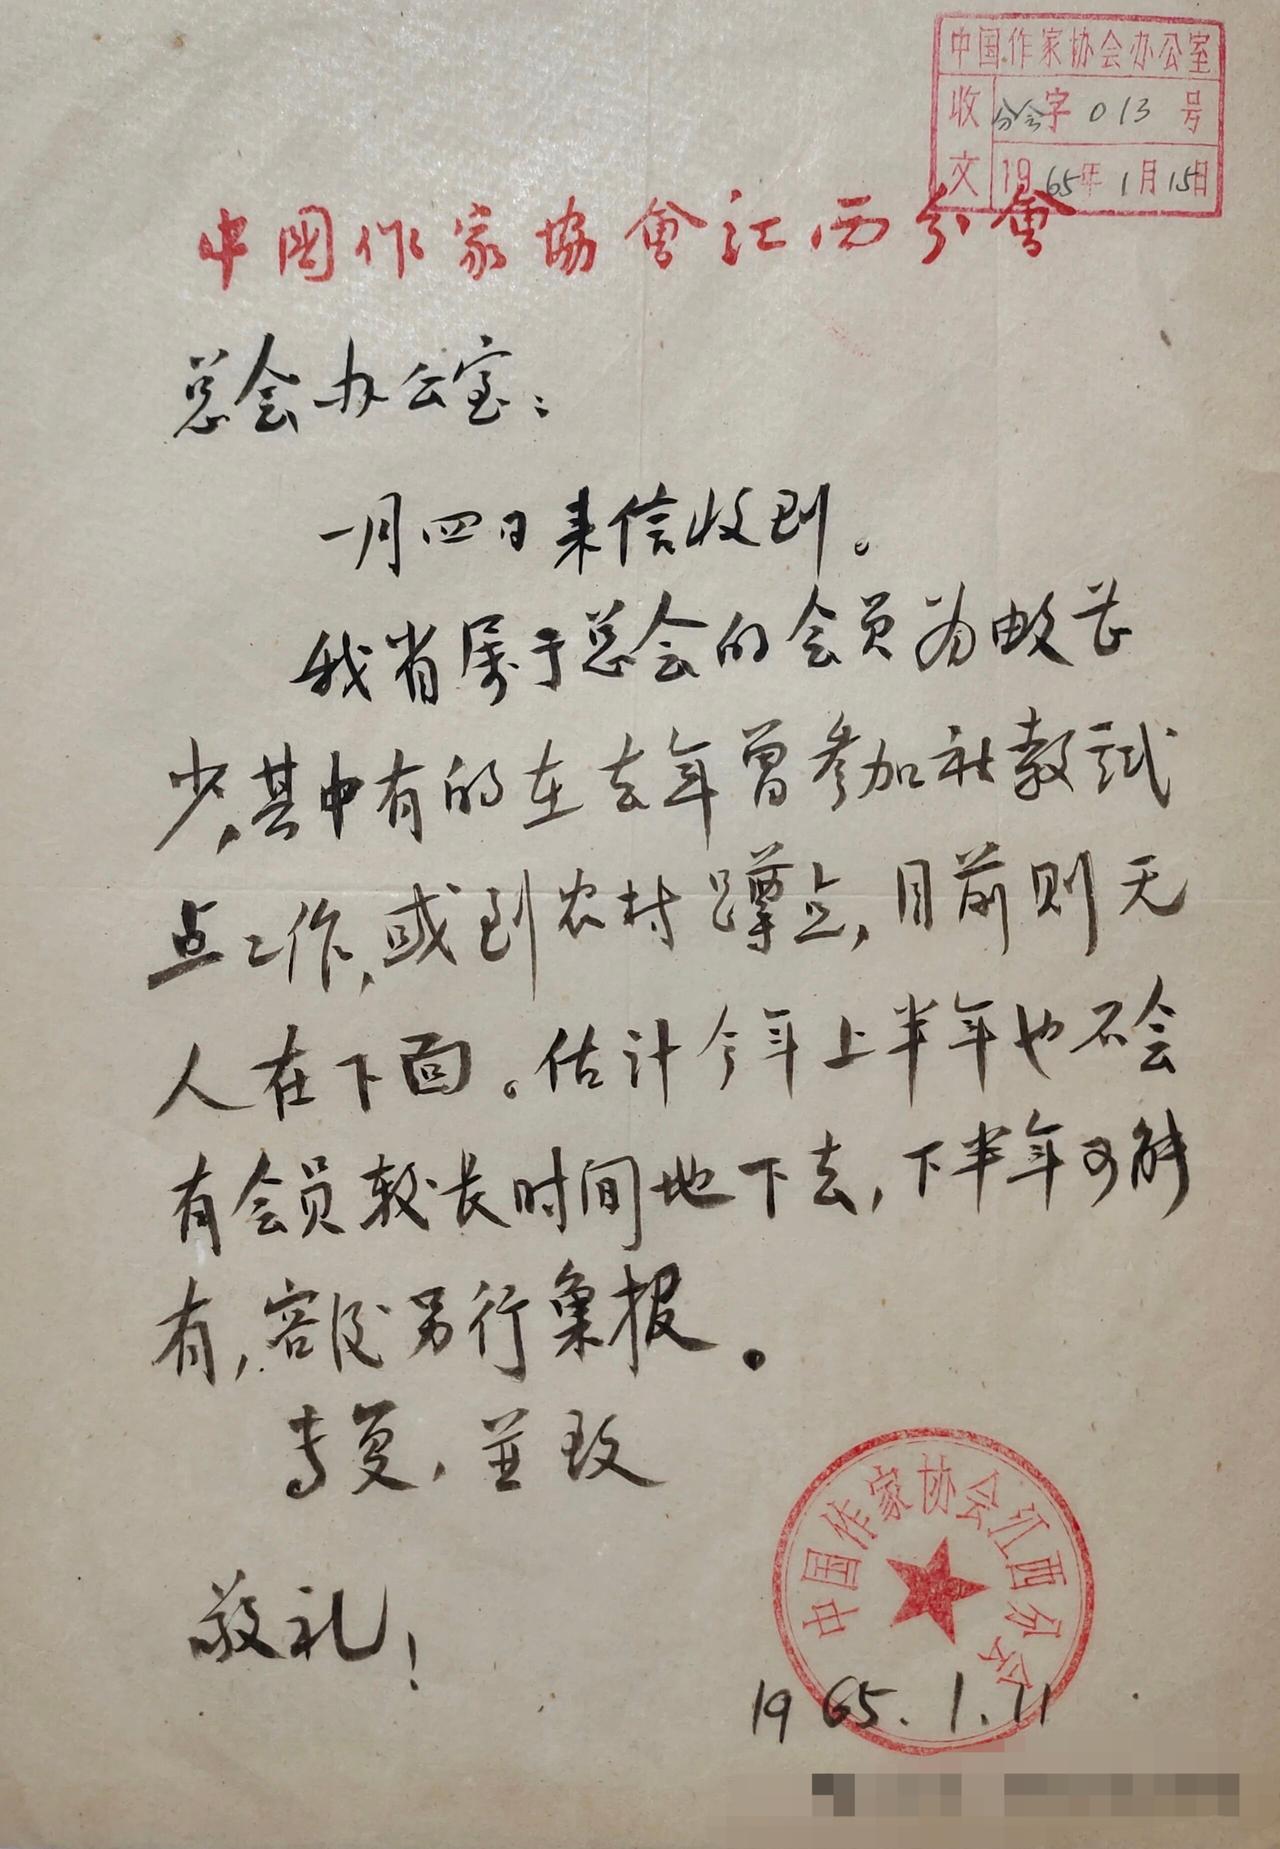 中国作家协会办公室
收 分会字 013 号
文 1965年1月15日
中國作家協會江西分會
总会办公室：
一月四日来信收到。
我省属于总会的会员为数甚
少，其中有的在去年曾参加社教试
点工作，或到农村蹲点，目前则无
人在下面。估计今年上半年也不会
有会员较长时间地下去，下半年可能
有，容后另行彙报。
专复，並致
敬礼！
中国作家协会江西分会
1965.1.11